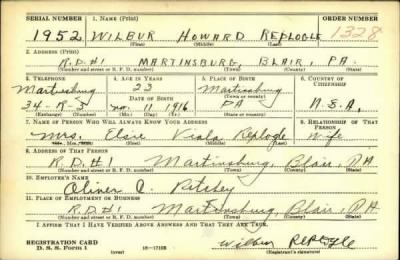 SERIAL NUMBER 1. NAME (Print) ORDER NUMBER
1952 WILBUR HOWARD REPLOGLE 1328
(First) (Middle) (Last)
2. ADDRESS (Print)
R.D.#1 MARTINSBURG, BLAIR, PA.
(Number and street or R. F. D. number) (Town) (County) (State)
3. TELEPHONE 4. AGE IN YEARS 5. PLACE OF BIRTH 6. COUNTRY OF CITIZENSHIP
Martinsburg 23 Martinsburg
DATE OF BIRTH
34-R-3 11 1916 PA
(Exchange) (Number) (Mo.) (Day) (Yr.) (Town or county) (State or country)
7. NAME OF PERSON WHO WILL ALWAYS KNOW YOUR ADDRESS 8. RELATIONSHIP OF THAT PERSON
Mrs. Viola Replogle Wife
(First) (Middle) (Last)
9. ADDRESS OF THAT PERSON
R.D.#1 Martinsburg, Blair, PA
(Number and street or R. F. D. number) (Town) (County) (State)
10. EMPLOYER'S NAME
Oliver
11. PLACE OF EMPLOYMENT OR BUSINESS
R.D.#1 Martinsburg, Blair, PA
(Number and street or R. F. D. number) (Town) (County) (State)
I AFFIRM THAT I HAVE VERIFIED ABOVE ANSWERS AND THAT THEY ARE TRUE.
REGISTRATION CARD Wilbur Replogle
D. S. S. Form 1 (over) (Registrant's signature)